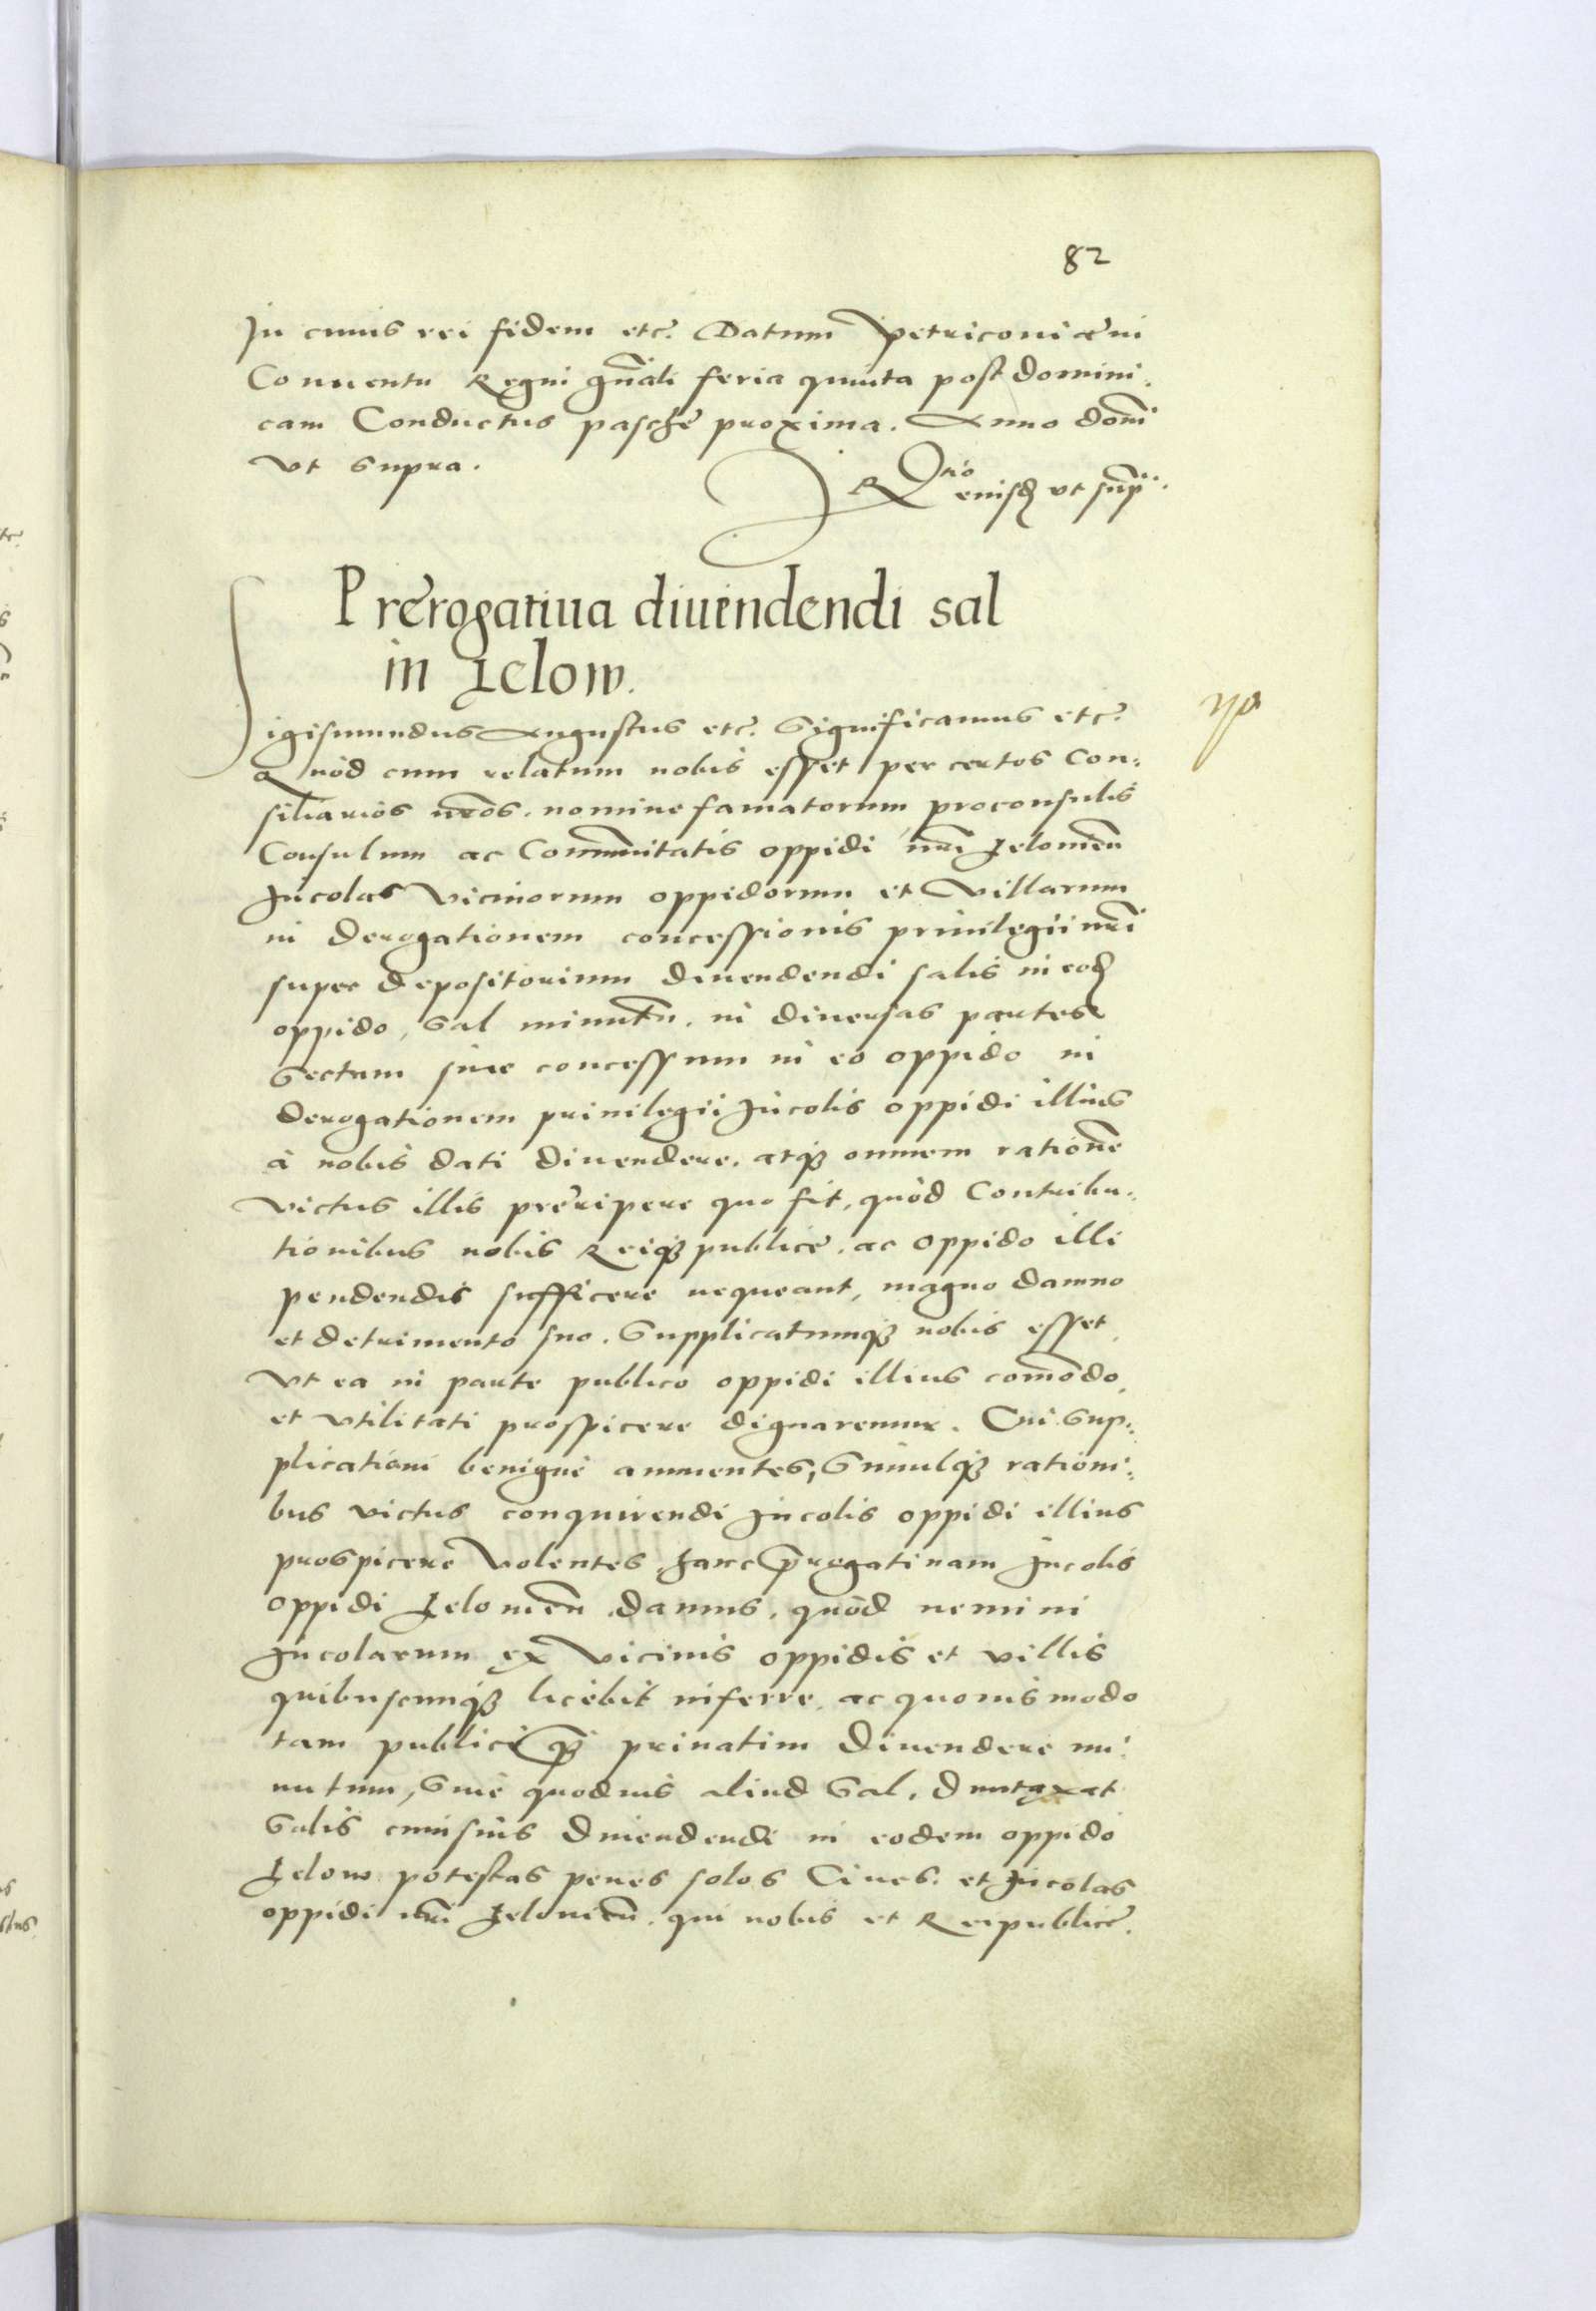 82
In cuius rei fidem etc. Datum Petricouiæ in
Conuentu Regni gnãli feria quinta post domini,
cam Conductus pasche proxima. Anno domi
vt supra.
R Rtio eiusd vt supr.
Prerogatiua diuendendi sal
in Ielow.
Sigismundus Augustus etc. Significamus etc.
Quòd cum relatum nobis esset per certos Con,
siliarios nros. nomine famatorum proconsulis
Consulum ac Communitatis oppidi nri Ielouien
Incolas Vicinorum oppidorum et Villarum
in derogationem concessionis priuilegii nri
super depositorium diuendendi salis in eod
oppido, Sal minutu. in diuersas partes
Sectum siue concessum in eo oppido in
derogationem priuilegii Incolis oppidi illius
à nobis dati diuendere. atq3 omnem rationẽ
victus illis preripere quo fit, quòd Contribu,
tionibus nobis Reiq3 publice. ac oppido illi
pendendis sufficere nequeant, magno damno
et detrimento suo. Supplicatumq3 nobis esset,
Vt ea in parte publico oppidi illius com̃odo,
et vtilitati prospicere dignaremur. Cui Sup,
plicationi benignè annuentes, Simulq3 rationi,
bus victus conquirendi Incolis oppidi illius
prospicere Volentes. hanc prerogatiuam Incolis
oppidi Ielouien damus. quòd nemini
Incolarum ex Vicinis oppidis et villis
quibuscunq3 licebit inferre. ac quouis modo
tam publicè q3 priuatim diuendere mi,
nutum, Siue quoduis aliud Sal. duntaxat
Salis cuiusuis diuendendi in eodem oppido
Ielow potestas penes solos Ciues. et Incolas
oppidi nri Ielouien. qui nobis et Reipublice.